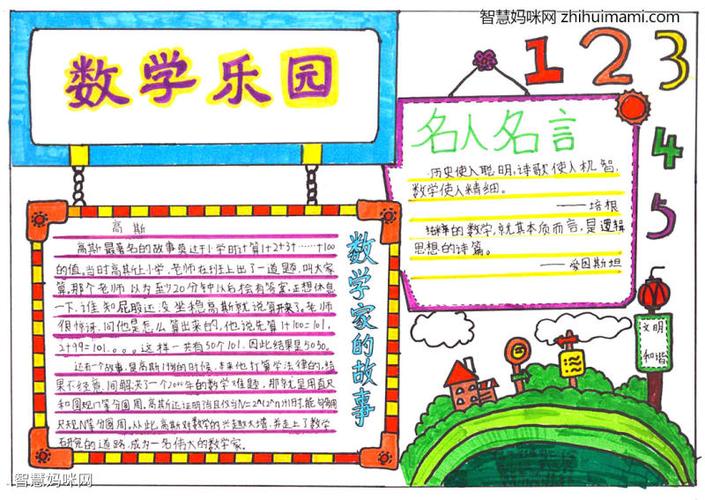 智慧妈咪网 zhihuimami.com
数学乐园
1 2 3
4
5
名人名言
历史使人聪明,诗歌使人机智,
数学使人精细。
——培根
纯粹的数学,就其本质而言,是逻辑
思想的诗篇。
——爱因斯坦
数学家的故事
高斯
高斯最著名的故事莫过于小学时计算1+2+3+……+100
的值,当时高斯上小学,老师在班上出了一道题,叫大家
算,那个老师以为至少20分钟以后才会有答案,正想休息
一下,谁知屁股还没坐稳高斯就说算开来了,老师
很惊讶,问他是怎么算出来的,他说先算1+100=101,
2+99=101。。。。这样一共有50个101,因此结果是5050。
还有一个故事,是高斯19岁的时候,本来他打算学法律的,结
果不经意间解决了一个2000年的数学难题,那就是用直尺
和圆规
等分圆周,高斯还证明当且仅当
等分圆周,从此高斯对数学的兴趣越大增,并走上了数学
研究的道路,成为一名伟大的数学家。
文明
和谐
智慧妈咪网